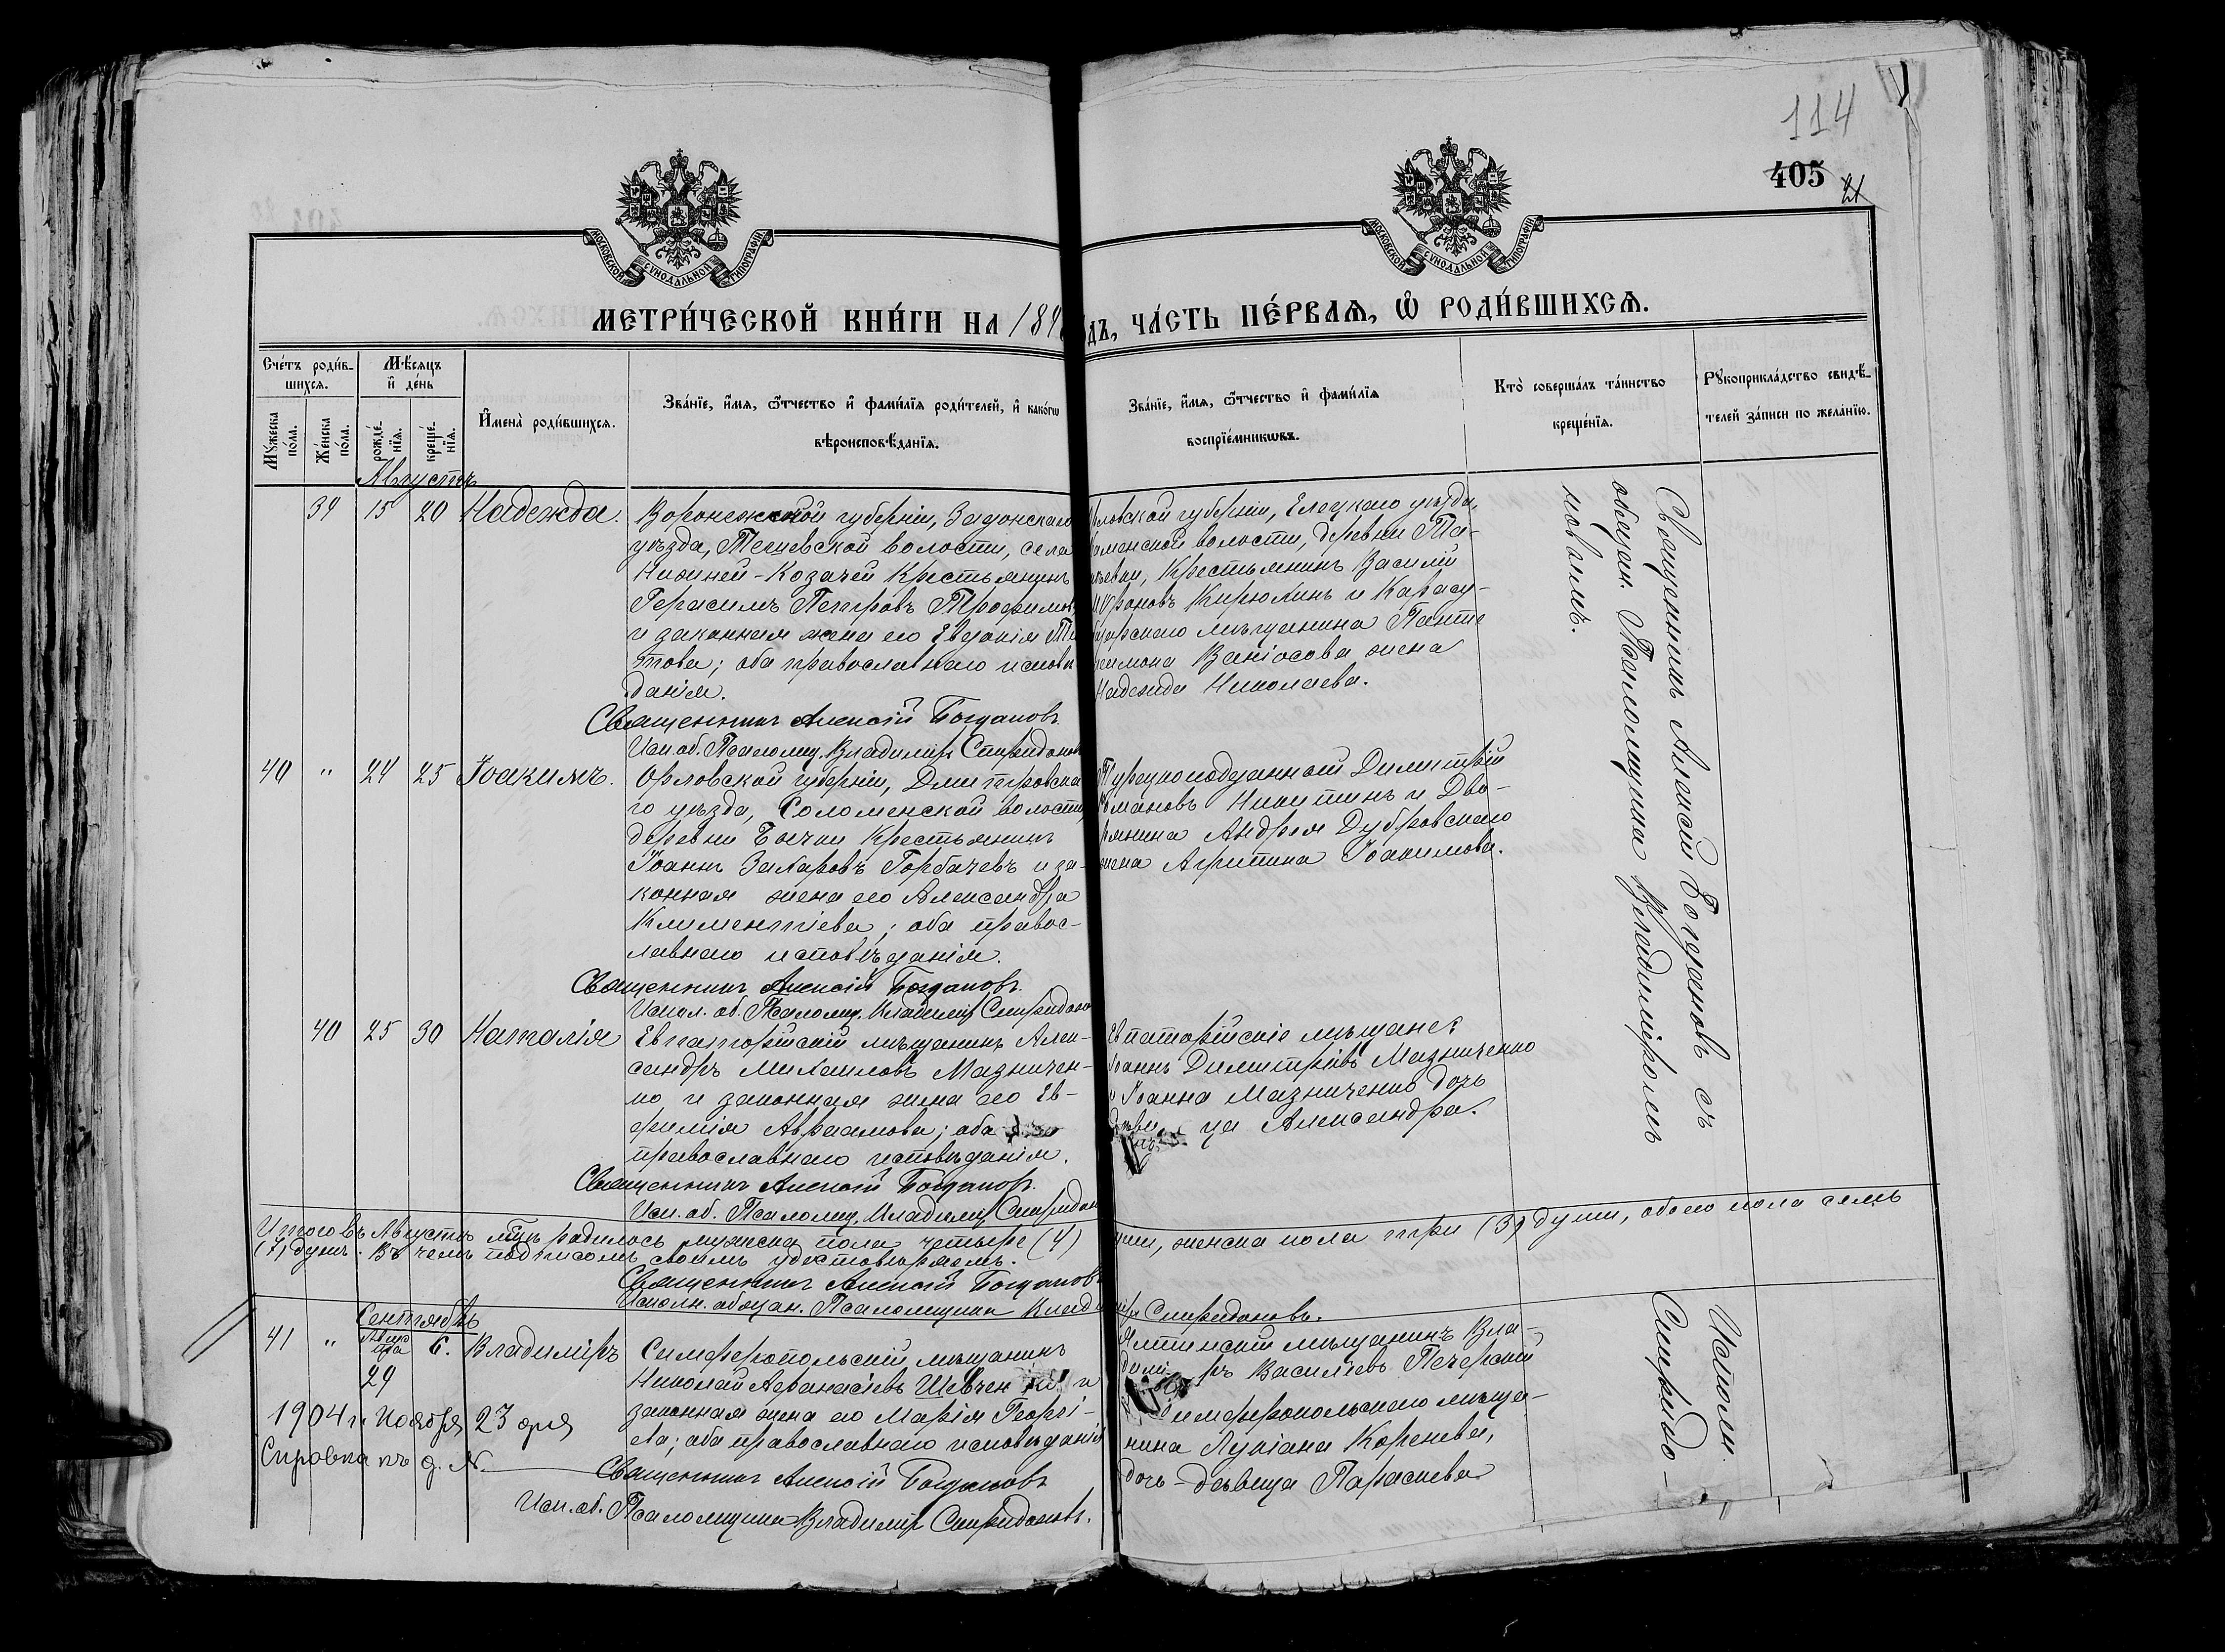 114
405
21
МОСКОВСКОЙ СѴНОДАЛЬНОЙ ТИПОГРАФІИ
МОСКОВСКОЙ СѴНОДАЛЬНОЙ ТИПОГРАФІИ
МЕТРИ́ЧЕСКОЙ КНИ́ГИ НА 189
дъ, ЧА́СТЬ ПЕ́РВАѦ, Ѽ РОДИ́ВШИХСѦ.
Сче́тъ роди́в-
шихсѧ.
Мѣ́сѧцъ
и҆ де́нь
Мꙋ́жеска
по́ла.
Же́нска
по́ла.
рожде́-
нїѧ.
креще́-
нїѧ.
И҆мена̀ роди́вшихсѧ.
Зва́нїе, и҆́мѧ, ѻ҆́тчество и҆ фами́лїѧ роди́телей, и҆ како́гѡ
вѣроисповѣ́данїѧ.
Зва́нїе, и҆́мѧ, ѻ҆́тчество и҆ фами́лїѧ
воспрїе́мникѡвъ.
Кто̀ соверша́лъ та́инство
креще́нїѧ.
Рꙋкоприкла́дство свидѣ́-
телей за́писи по жела́нїю.
Августъ
39 15 20 Надежда.
Воронежской губерніи, Задонскаго
уѣзда, Тешевской волости, села
Нижней-Козачей Крестьянинъ
Герасимъ Петровъ Трофимов
и законная жена его Евдокія Ти
това; оба православнаго исповѣ
данія.
Священникъ Алексій Богдановъ.
Исп. об. Псаломщ. Владиміръ Спиридонов
рловской губерніи, Елецкаго уѣзда,
аменской волости, деревни Та-
евки, Крестьянинъ Василій
Кирюхинъ и Карасу-
базарскаго мѣщанина Панте
леимона Ваніосова жена
Надежда Николаева.
40 " 24 25 Іоакимъ.
Орловской губерніи, Дмитровска
го уѣзда, Соломенской волости,
деревни Бычки Крестьянинъ
Іоаннъ Захаровъ Горбачевъ и за-
конная жена его Александра
Климентіева; оба правос-
лавнаго исповѣданія.
Священникъ Алексій Богдановъ.
Испол. об. Псаломщ. Владиміръ Спиридонов
Турецкоподданный Димитрій
Романовъ Никитинъ и Дво-
рянина Андрея Дубровскаго
жена Агрипина Іоакимова.
40 25 30 Наталія
Евпаторійскій мѣщанинъ Алек-
сандръ Михаиловъ Мазничен-
ко и законная жена его Ев-
фимія Авраамова; оба
православнаго исповѣданія.
Священникъ Алексій Богдановъ.
Исп. об. Псаломщ. Владиміръ Спиридон
Евпаторійскіе мѣщане:
Іоаннъ Димитріевъ Мазниченко
и Іоанна Мазниченко дочь
дѣви ца Александра.
Священникъ Алексій Богдановъ съ
обязан. Псаломщика Владиміромъ
Итого въ Августѣ мцѣ родилось мужска пола четыре (4)
уши, женска пола три (3) души, обоего пола семь
(7) душъ. Въ чемъ подписомъ своимъ удостовѣряемъ.
Священникъ Алексій Богдановъ
Исполн. обязан. Псаломщика Влади
міръ Спиридоновъ.
Сентябрь
41 " Авгус
та 6. Владиміръ
29
Симферопольскій мѣщанинъ
Николай Аѳанасіевъ Шевчен ко и
законная жена его Марія Георгі-
ева; оба православнаго исповѣданія
Священникъ Алексій Богдановъ
Исп. об. Псаломщика Владиміръ Спиридоновъ.
Ялтинскій мѣщанинъ Вла-
димі ръ Василіевъ Печерскій
и Симферопольскаго мѣща-
нина Лукіана Коренева,
дочь-дѣвица Параскева
Исполн.
Спиридо-
1904 г. Ноября 23 дня
Справка къ д. №